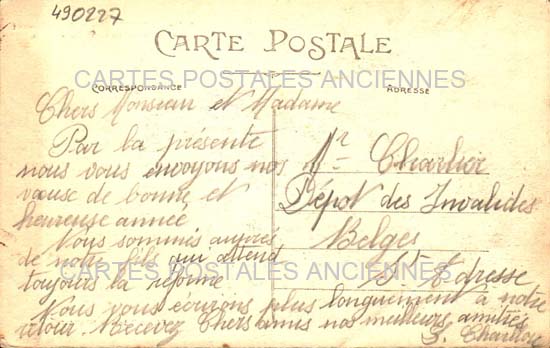 490227
CARTE POSTALE
CARTES POSTALES ANCIENNES
CORRESPONDANCE
ADRESSE
Chers Monsieur et Madame
Par la présente
nous vous envoyons nos
vœuse de bonne et
heureuse année
Nous sommes auprès
de notre fils qui attend
toujours la réforme
Nous vous écrirons plus longuement à notre
retour. Recevez Chers amis nos meilleurs amitiés
Mr Charlier
Dépot des Invalides
Belges
St Adresse
CARTES POSTALES ANCIENNES